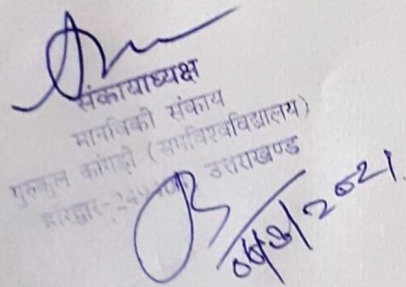 संकायाध्यक्ष
मानविकी संकाय
गुरुकुल कांगड़ी (समविश्वविद्यालय)
हरिद्वार- उत्तराखण्ड
2021